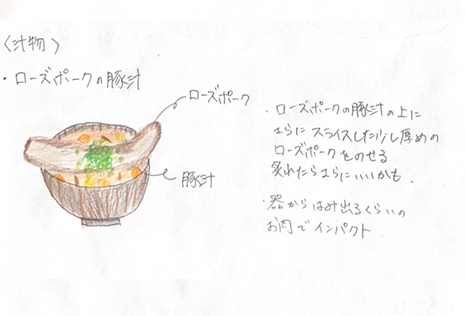 〈汁物〉
・ローズポークの豚汁
ローズポーク
豚汁
・ローズポークの豚汁の上に
さらにスライスした少し厚めの
ローズポークをのせる
炙れたらさらにいいかも.
・器からはみ出るくらいの
お肉でインパクト